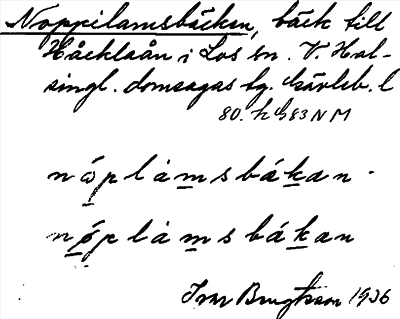 Noppilamsbäcken, bäck till
Håcklaån i Los sn. V. Häl-
singl. domsagas tg. Gävleb. l
80. h G83 NM
nóplàmsbákan.
nøplàmsbákan
Ivar Bengtsson 1936